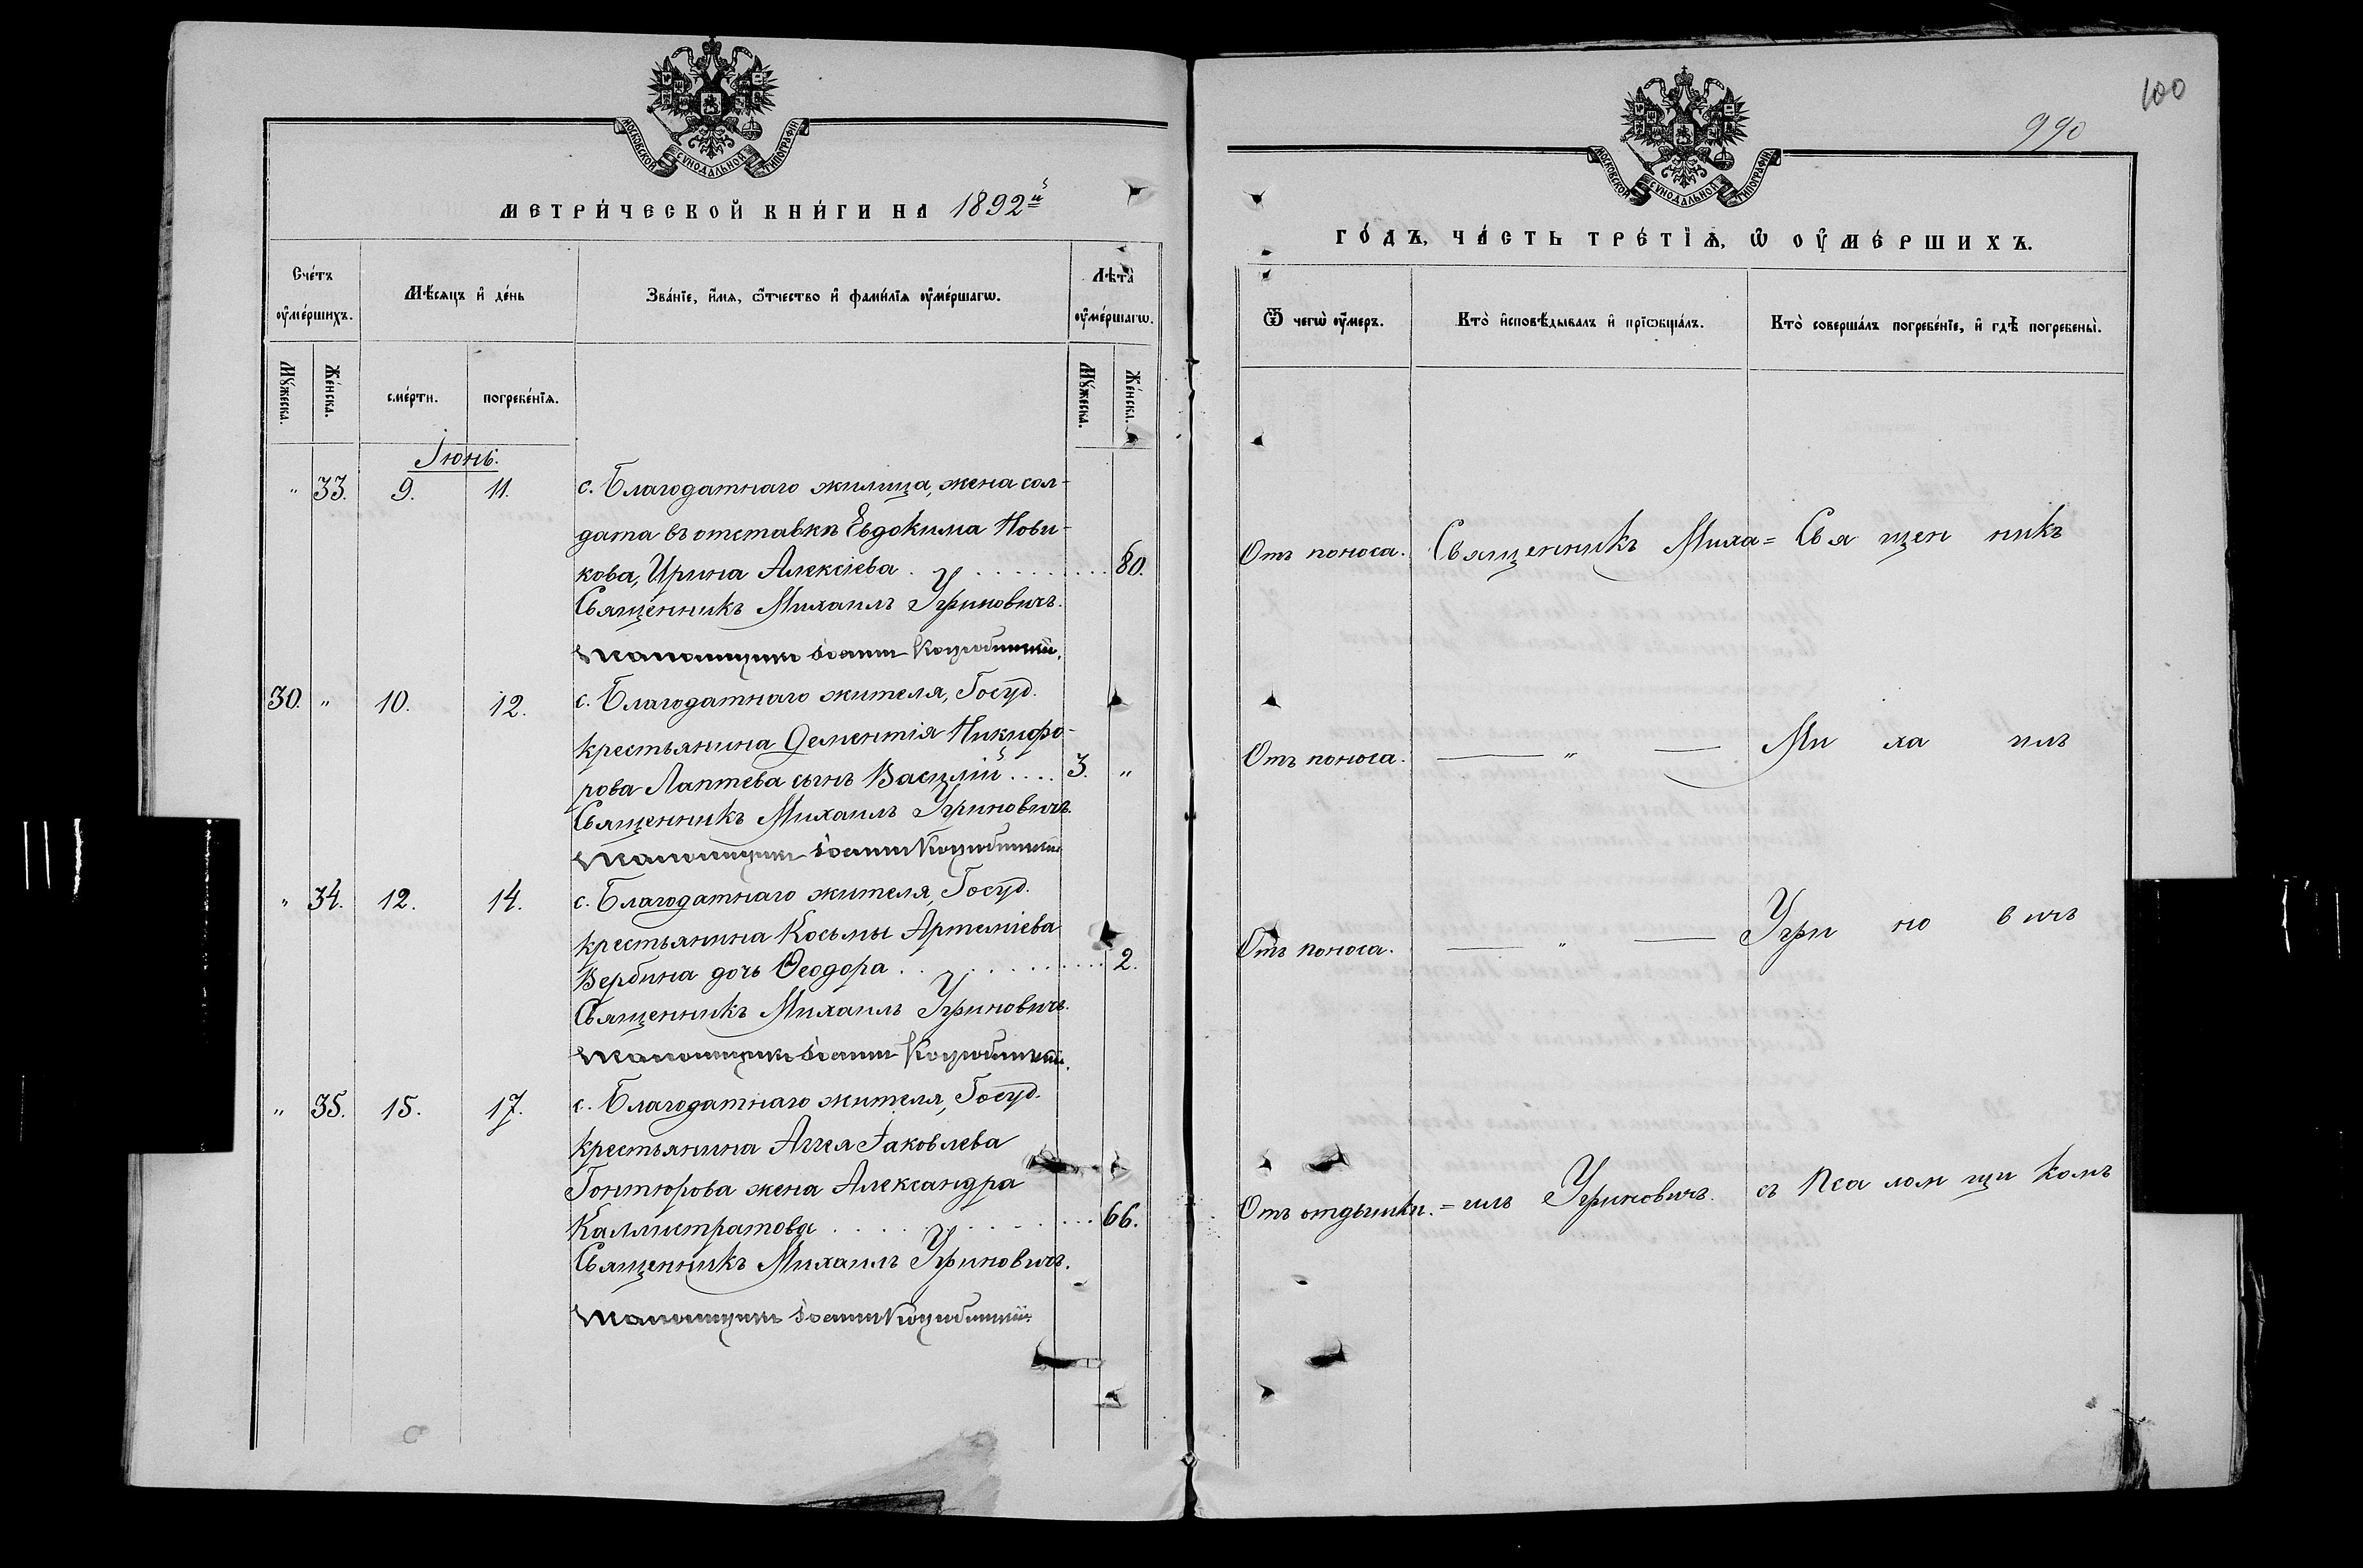 МОСКОВСКОЙ СѴНОДАЛЬНОЙ ТИПОГРАФІИ
МЕТРИ́ЧЕСКОЙ КНИ́ГИ НА 1892й
Сче́тъ ᲂу҆ме́ршихъ.
Мѣ́сяцъ и҆ де́нь
Зва́нїе, и҆́мѧ, ѻ҆́тчество и҆ фами́лїѧ ᲂу҆ме́ршагѡ.
Лѣ́та ᲂу҆ме́ршагѡ.
Мꙋ́жеска.
Же́нска.
сме́рти.
погребе́нїѧ.
Мꙋ́жеска.
Же́нска.
Іюнь.
" 33. 9. 11. с. Благодатнаго жилица, жена сол-
дата въ отставкѣ Евдокима Нови-
кова, Ирина Алексіева . . . . . . . . . 80.
Священникъ Михаилъ Угриновичъ.
Псаломщикъ Іоаннъ
30. " 10. 12. с. Благодатнаго жителя, Госуд.
крестьянина Дементія Никифо-
рова Лаптева сынъ Василій .... 3. "
Священникъ Михаилъ Угриновичъ.
Псаломщикъ Іоаннъ
" 34. 12. 14. с. Благодатнаго жителя, Госуд.
крестьянина Косьмы Артеміева
Вербина дочь Ѳеодора . . . . . . . . . 2.
Священникъ Михаилъ Угриновичъ.
Псаломщикъ Іоаннъ
" 35. 15. 17. с. Благодатнаго жителя, Госуд.
крестьянина Аггея Іаковлева
Гонтюрова жена Александра
Каллистратова . . . . . . . . . 66.
Священникъ Михаилъ Угриновичъ.
Псаломщикъ Іоаннъ
100
990
МОСКОВСКОЙ СѴНОДАЛЬНОЙ ТИПОГРАФІИ
ГО́ДЪ, ЧА́СТЬ ТРЕ́ТЇѦ, Ѡ҆ ОУ҆МЕ́РШИХЪ.
Ѿ чегѡ̀ ᲂу҆́меръ.
Кто̀ и҆сповѣ́дывалъ и҆ прїѡбща́лъ.
Кто̀ соверша́лъ погребе́нїе, и҆ гдѣ̀ погребены̀.
Отъ поноса. Священникъ Миха= Свя щен никъ
Отъ поноса. — " — Ми ха илъ
Отъ поноса. — " — Угри но вичъ
Отъ отдышки. =илъ Угриновичъ. съ Псa лом щи комъ